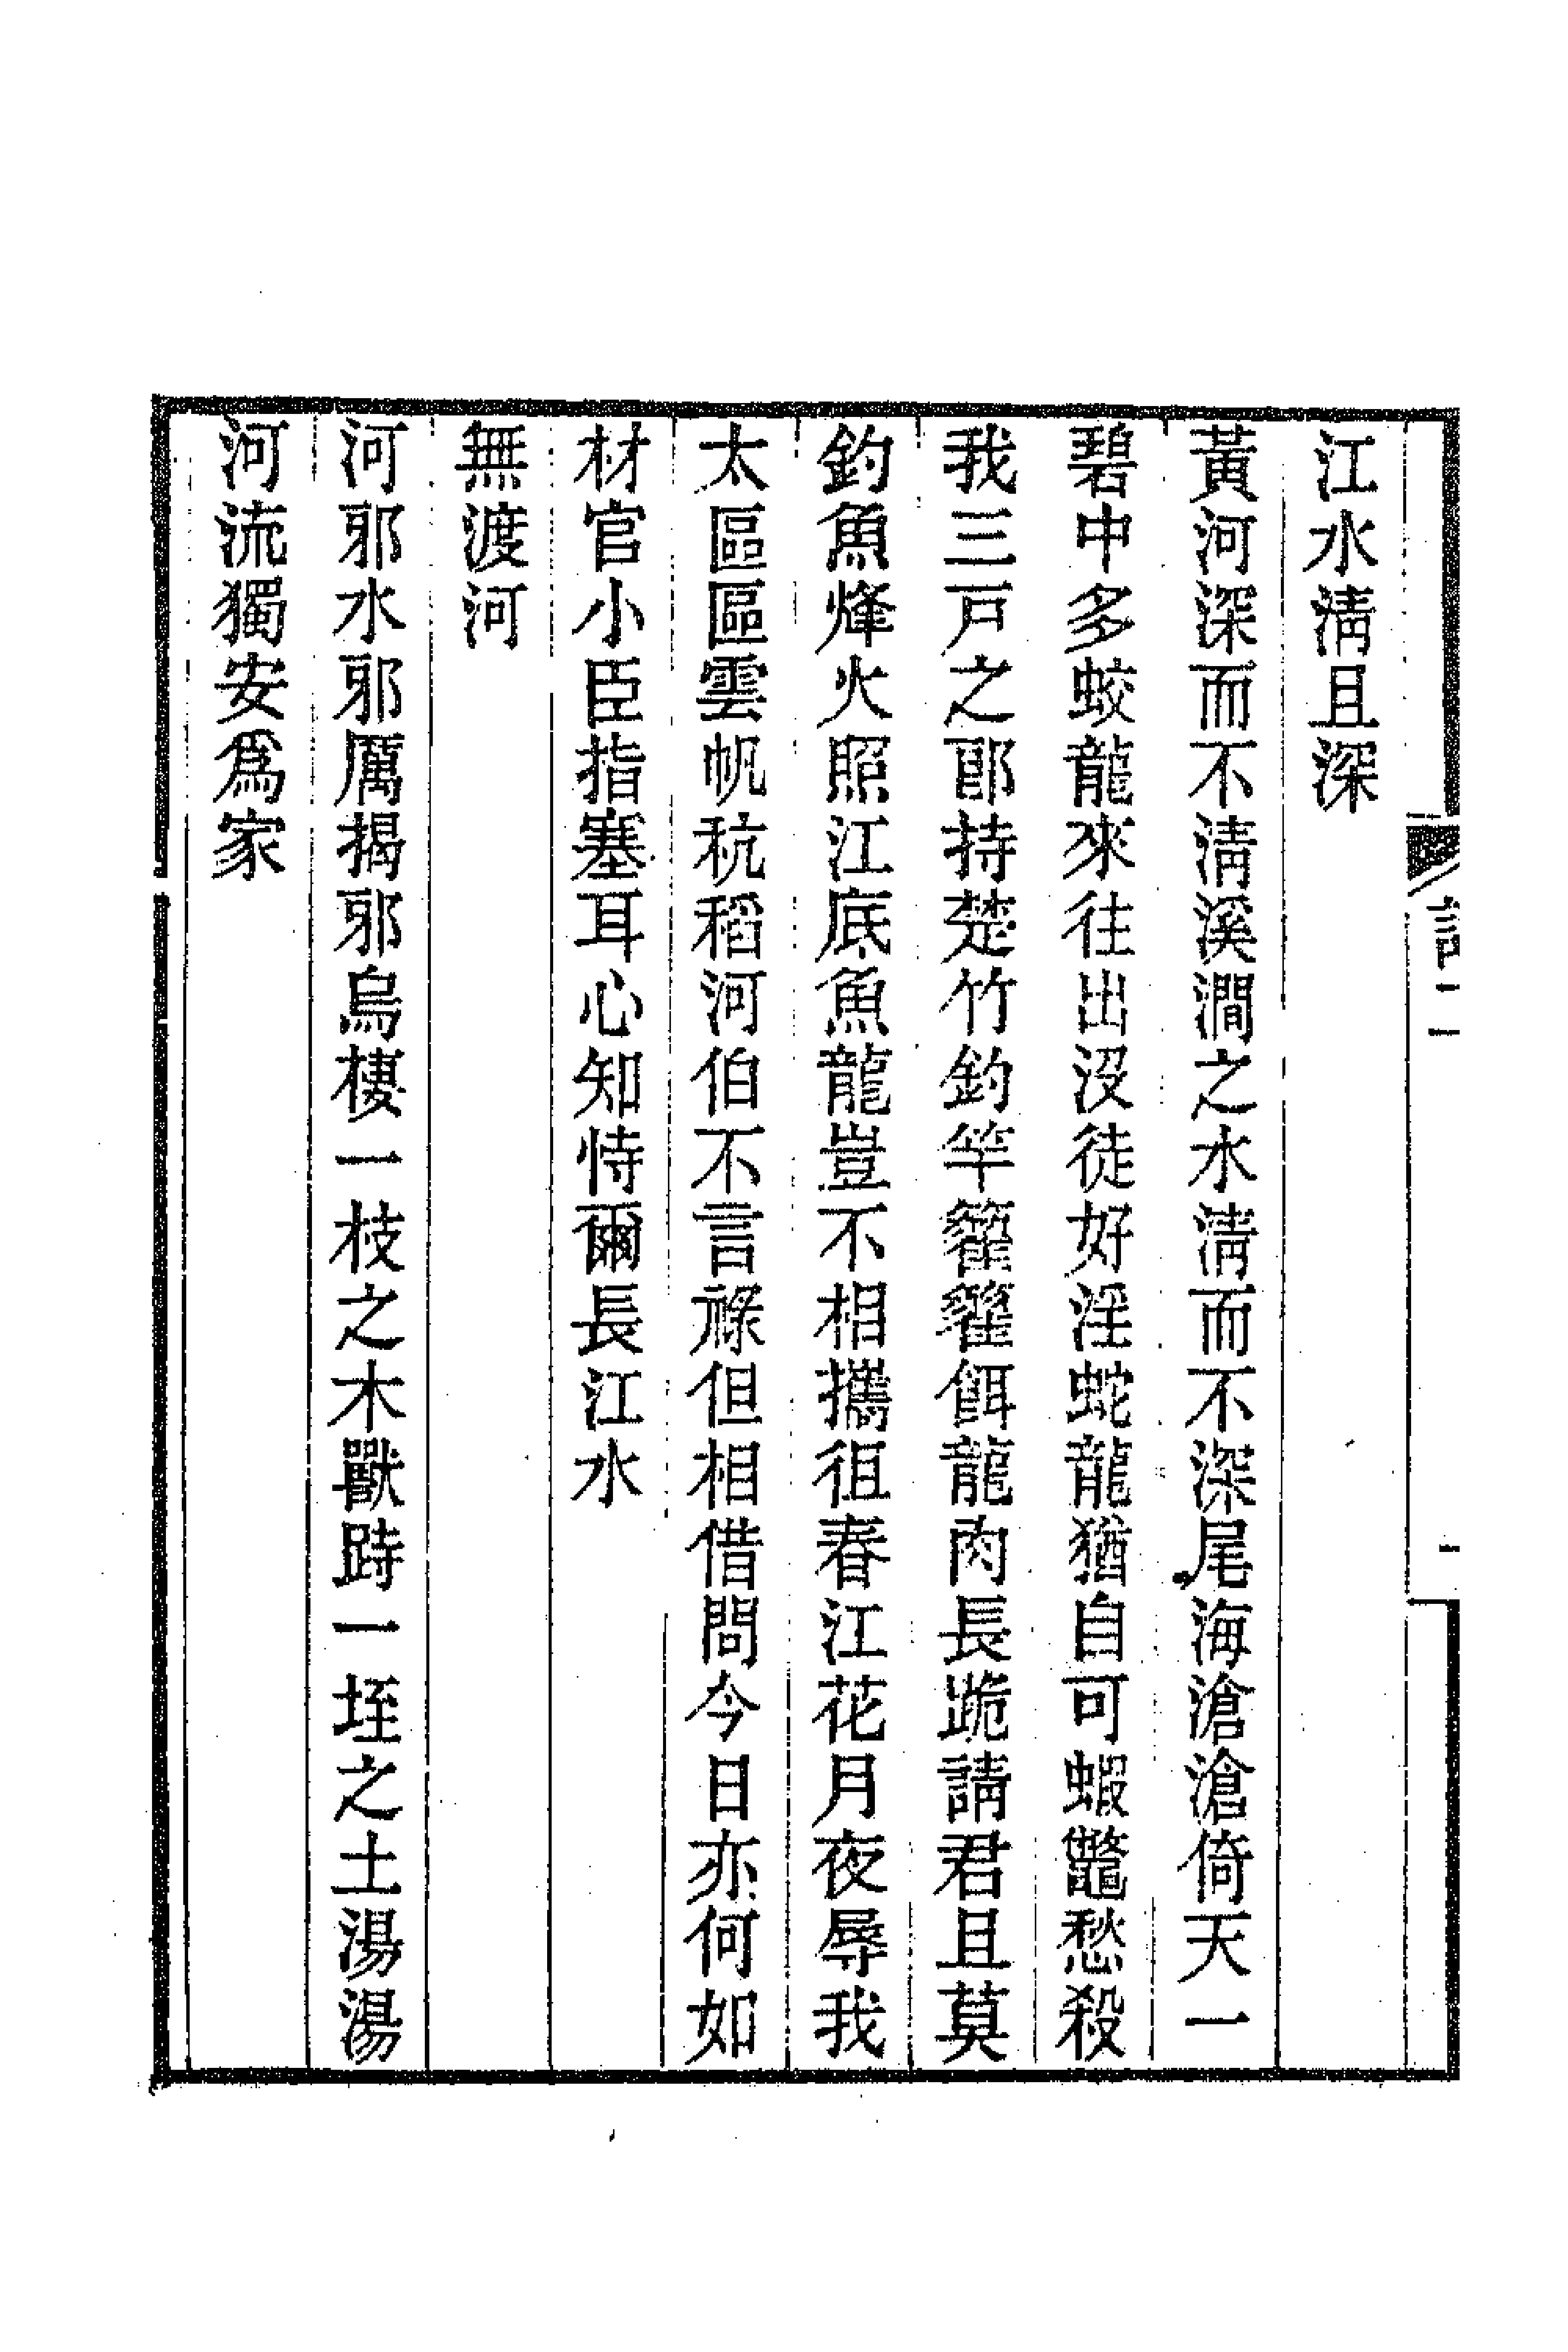 江水淸且深
黃河深而不淸溪澗之水淸而不深尾海滄滄倚天一
碧中多蛟龍來往出沒徒好淫蛇龍猶自可蝦鼈愁殺
我三戸之郎持楚竹釣竿籊籊餌龍肉長跪請君且莫
釣魚烽火照江底魚龍豈不相攜徂春江花月夜辱我
太區區雲帆秔稻河伯不言祿但相借問今日亦何如
材官小臣指塞耳心知恃爾長江水
無渡河
河邪水邪厲揭邪烏棲一枝之木獸跱一垤之土湯湯
河流獨安爲家